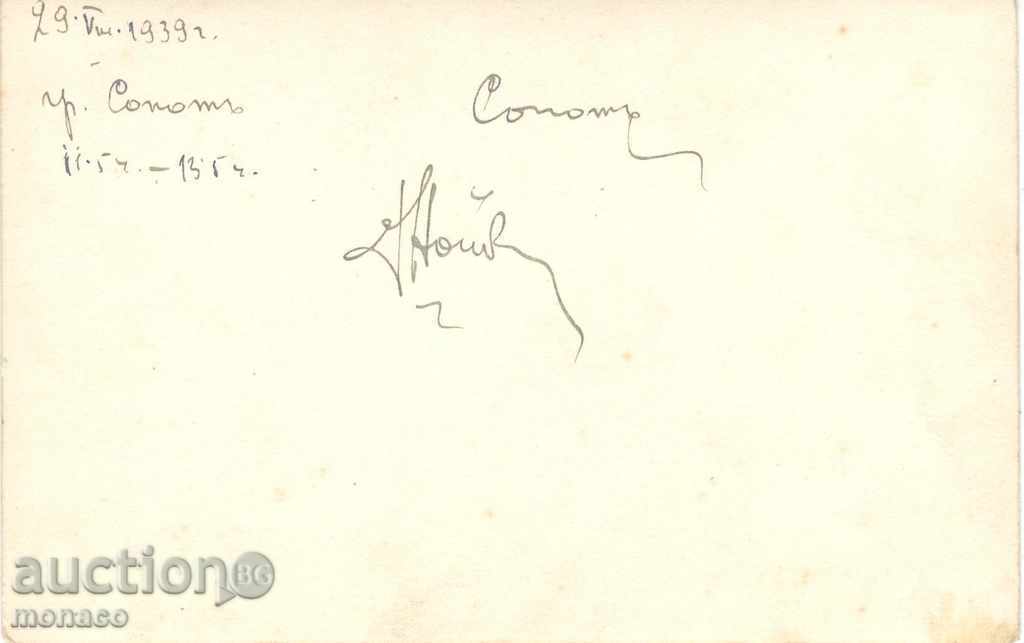 29.VIII.1939 г.
гр. Сопотъ
Сопотъ
11.5 ч. – 13.5 ч.
auction BG
monaco